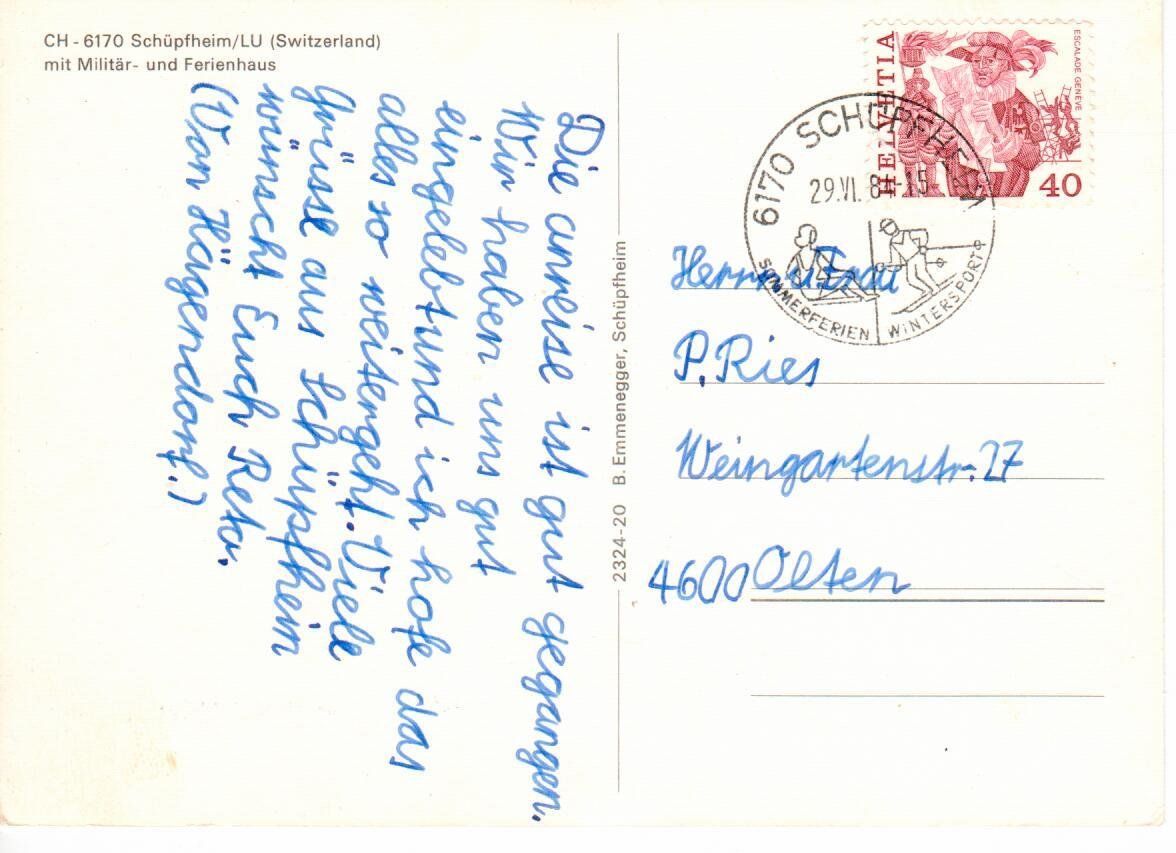 CH - 6170 Schüpfheim/LU (Switzerland)
mit Militär- und Ferienhaus
Die anreise ist gut gegangen.
Wir haben uns gut
eingelebt und ich hofe das
alles so weitergeht. Viele
Grüsse aus Schüpfheim
wünscht Euch Reta.
(Von Hägendorf.)
2324-20 B. Emmenegger, Schüpfheim
HELVETIA
ESCALADE GENEVE
40
6170 SCHÜPFHEIM
29.VI. 8 -15
SOMMERFERIEN WINTERSPORT
Herr u Frau
P. Ries
Weingartenstr. 27
4600 Olten